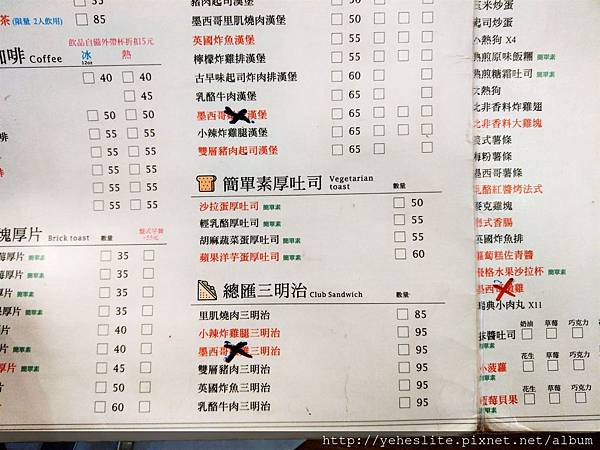 茶(限量 2人飲用) 85
飲品自備外帶杯折扣5元
咖啡 Coffee 冰 12oz 熱
40 40
45
50 50
55 55
55 55
55 55
55 55
厚片 Brick toast 數量
厚片 簡單素 35
厚片 簡單素 35
厚片 簡單素 35
厚片 簡單素 35
厚片 簡單素 40
厚片 簡單素 45
50
60
豬肉起司漢堡 55
墨西哥里肌燒肉漢堡 65
英國炸魚漢堡 65
檸檬炸雞排漢堡 65
古早味起司炸肉排漢堡 60
乳酪牛肉漢堡 65
墨西哥 漢堡 65
小辣炸雞腿漢堡 65
雙層豬肉起司漢堡 65
簡單素厚吐司 Vegetarian toast 數量
沙拉蛋厚吐司 簡單素 50
輕乳酪厚吐司 簡單素 55
胡麻蔬菜蛋厚吐司 簡單素 55
蘋果洋芋蛋厚吐司 簡單素 60
總匯三明治 Club Sandwich 數量
里肌燒肉三明治 85
小辣炸雞腿三明治 95
墨西哥 三明治 95
雙層豬肉三明治 95
英國炸魚三明治 95
乳酪牛肉三明治 95
玉米炒蛋
起司炒蛋
小熱狗 X4
熱煎原味飯糰 簡單素
熱煎糖霜吐司 簡單素
大熱狗
北非香料炸雞翅
北非香料大雞塊
美式薯條
梅粉薯條
墨西哥薯條
乳酪紅醬烤法式
麥克雞塊
德式香腸
英國炸魚排
蘿蔔糕佐青醬
優格水果沙拉杯 簡單素
墨西哥 雞
瑞典小肉丸 X11
抹醬吐司 簡單素 奶油 草莓 巧克力
小菠蘿 簡單素 花生 草莓 巧克力
藍莓貝果 簡單素 花生 草莓 巧克力
http://yeheslite.pixnet.net/album